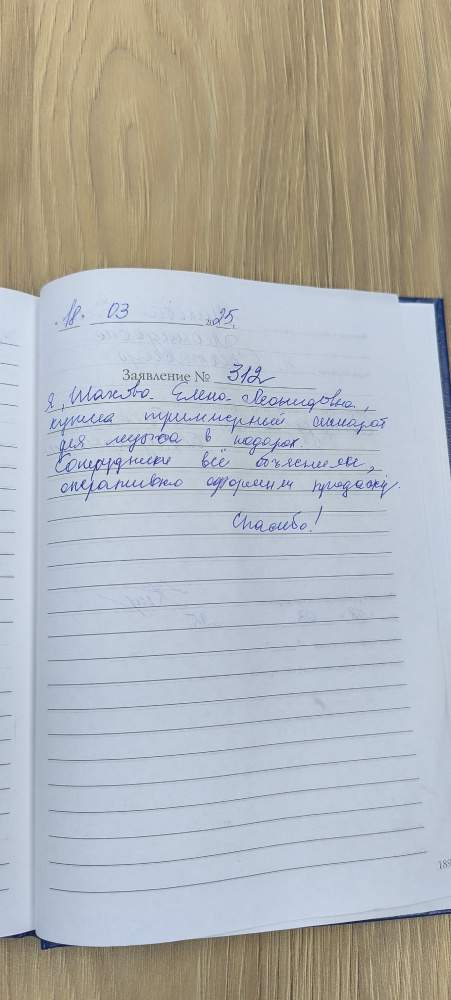 „18“ 03 25.
Заявление № 312
Я, Шахова Елена Леонидовна,
купила триммерный аппарат
для мужа в подарок.
Сотрудники всё объяснили,
оперативно оформили продажу.
Спасибо!
189